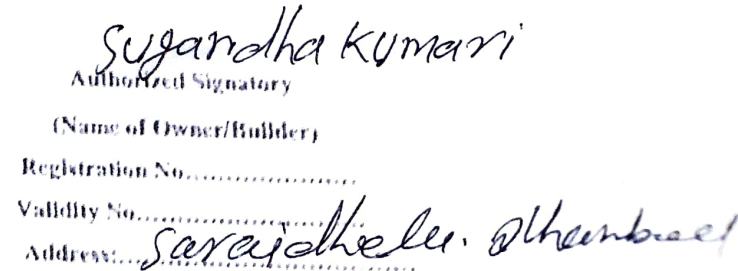 Sugandha Kumari
Authorized Signatory
(Name of Owner/Builder)
Registration No......................
Validity No......................
Address:... Saraidhela. Dhanbad